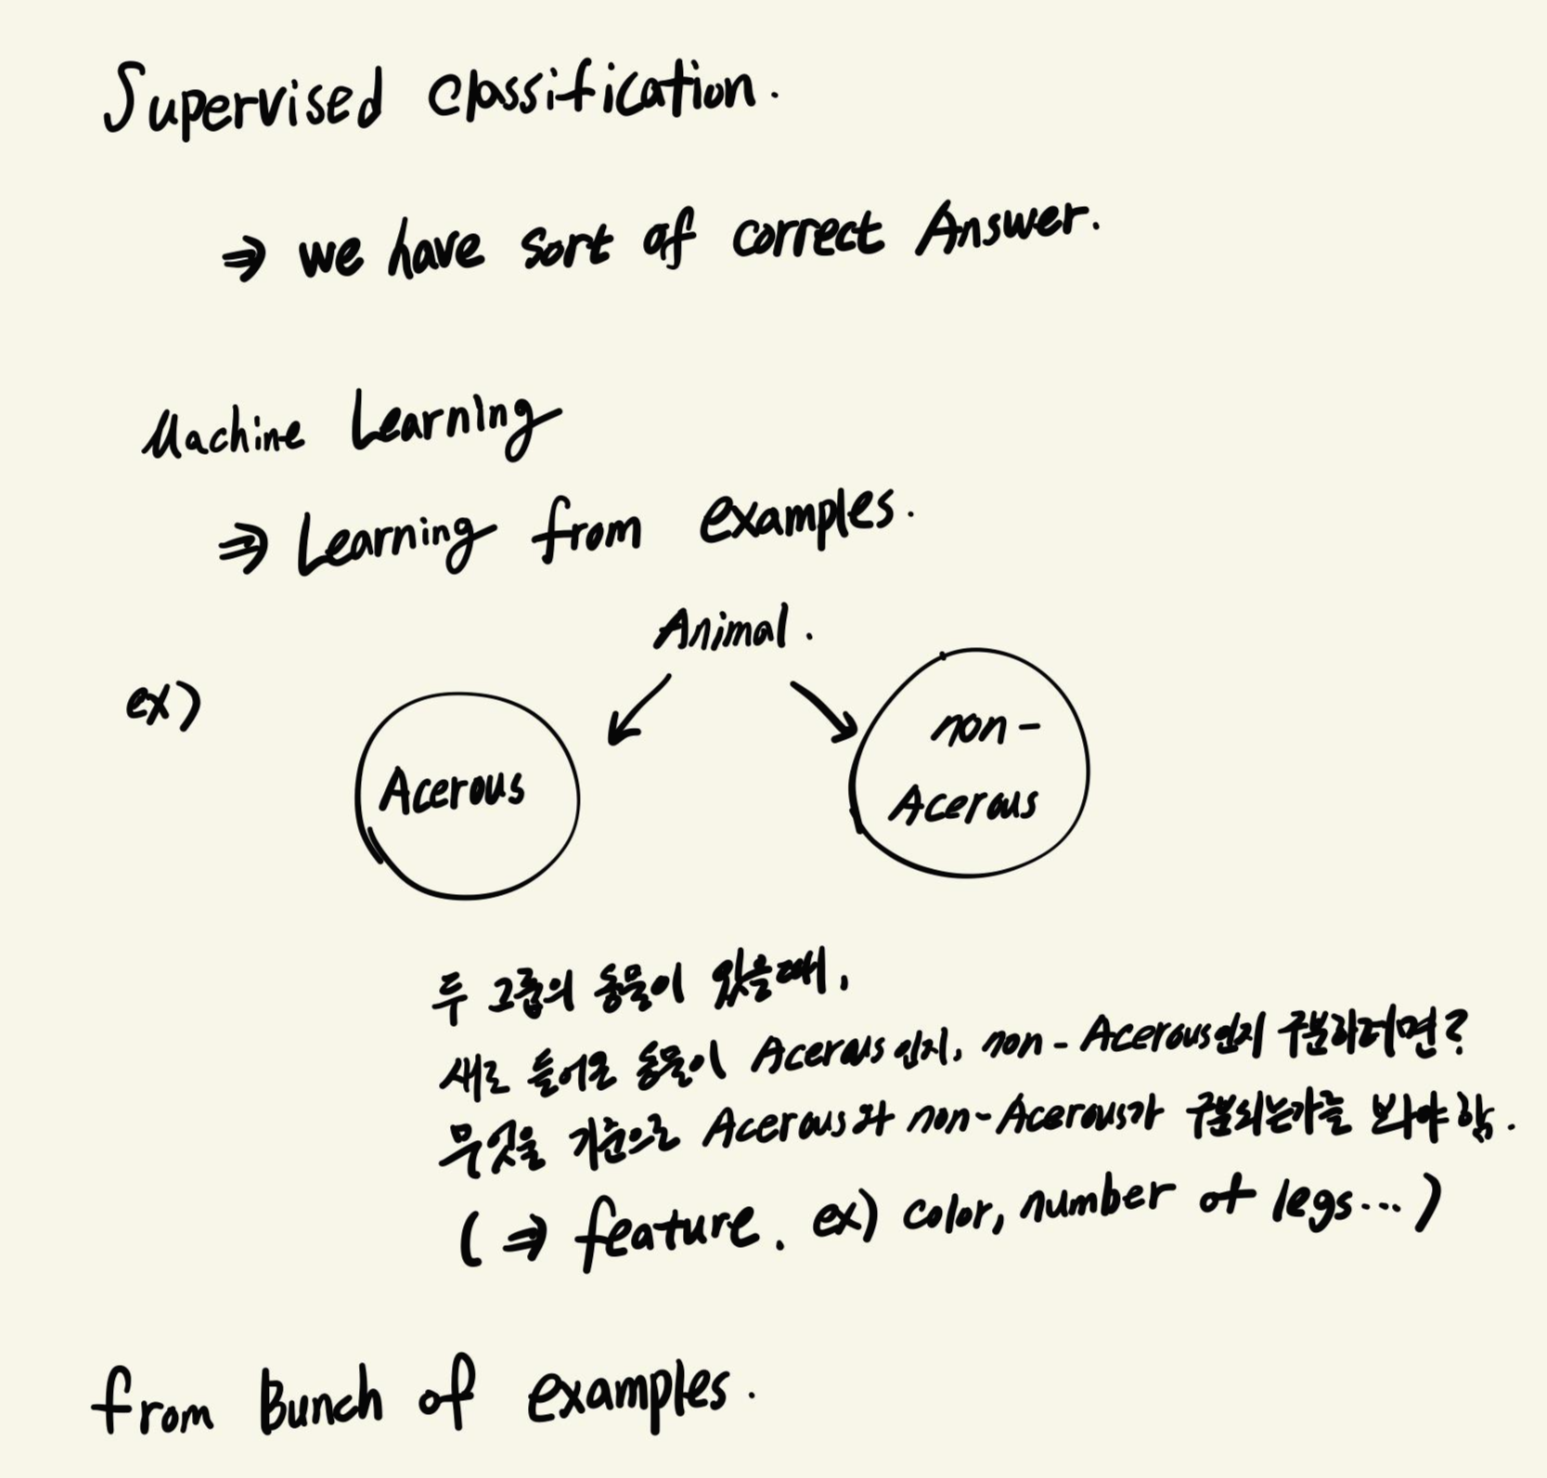 Supervised classification.
⇒ we have sort of correct Answer.
Machine Learning
⇒ Learning from examples.
Animal.
ex)
Acerous
non-
Acerous
두 그룹의 동물이 있을때,
새로 들어온 동물이 Acerous인지, non-Acerous인지 구분하려면?
무엇을 기준으로 Acerous와 non-Acerous가 구분되는가를 봐야 함.
(⇒ feature. ex) color, number of legs...)
from Bunch of examples.